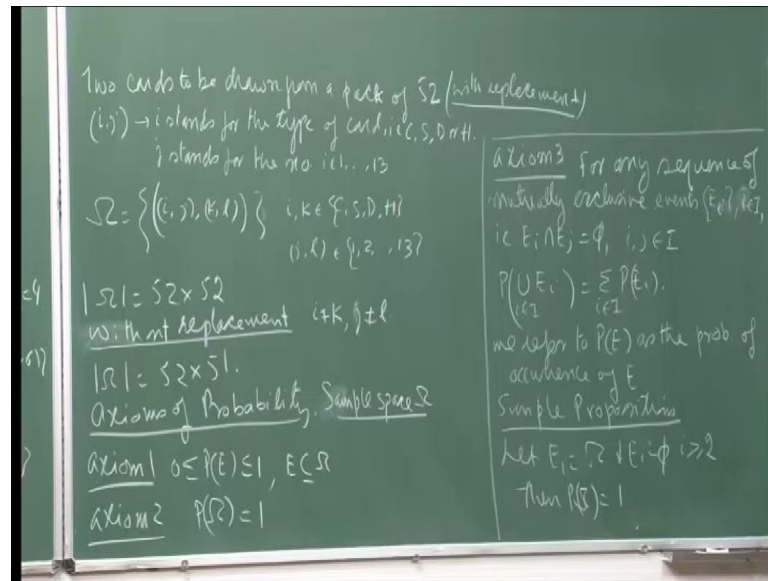 Two cards to be drawn from a pack of 52 (with replacement)
(i,j) → i stands for the type of card, i.e C, S, D or H.
j stands for the no. i.e 1. . ,13
Ω = {((i, j), (k, l))} i, k ∈ {C, S, D, H}
(j, l) ∈ {1, 2, . , 13}
|Ω| = 52 x 52
without replacement i≠k, j≠l
|Ω| = 52 x 51.
Axioms of Probability. Sample space Ω
axiom1 0 ≤ P(E) ≤ 1, E ⊆ Ω
axiom2 P(Ω) = 1
=4
axiom3 For any sequence of
mutually exclusive events {Ei}, i∈I,
ie Ei ∩ Ej = ϕ, i, j ∈ I
P(∪ Ei) = Σ P(Ei).
i∈I i∈I
we refer to P(E) as the prob. of
occurrence of E
Simple Propositions
Let E1 = Ω Ei = ϕ i ≥ 2
Then P(Ω) = 1